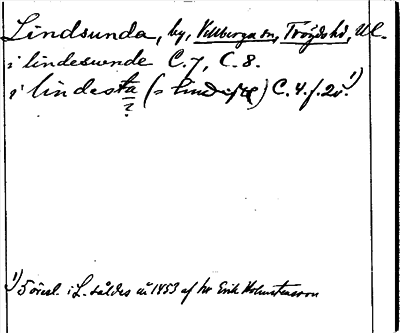 Lindsunda, by, Villberga sn, Trögds hd, Ul.
i lindeswnde C.7, C.8.
i lindesta (= lindesta) C.4. f. 20. 1)
?
1) 5 öresl. i L. såldes av 1453 af hr Erik Holmstensson